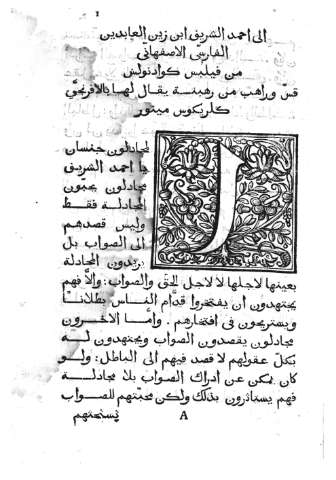 1
الى احمد الشريف ابن زين العابدين
الفارسي الاصفهاني
من فيليس كوادنولش
قس وراهب من رهبنة يقال لها بالافرنجي
كلريكوس مينور
المجادلون جنسان
يا احمد الشريف
مجادلون يحبون
المجادلة فقط
وليس قصدهم
الى الصواب بل
يريدون المجادلة
بعينها لاجلها لا لاجل الحق والصواب: والا فهم
يجتهدون ان يفتخروا قدام الناس بطلانا
ويستريحون في افتخارهم. واما الاخرون
مجادلون يقصدون الصواب ويجتهدون له
بكل عقولهم لا قصد فيهم الى الباطل: ولو
كان يمكن عن ادراك الصواب بلا مجادلة
فهم يستاثرون بذلك ولكن محبتهم للصواب
A